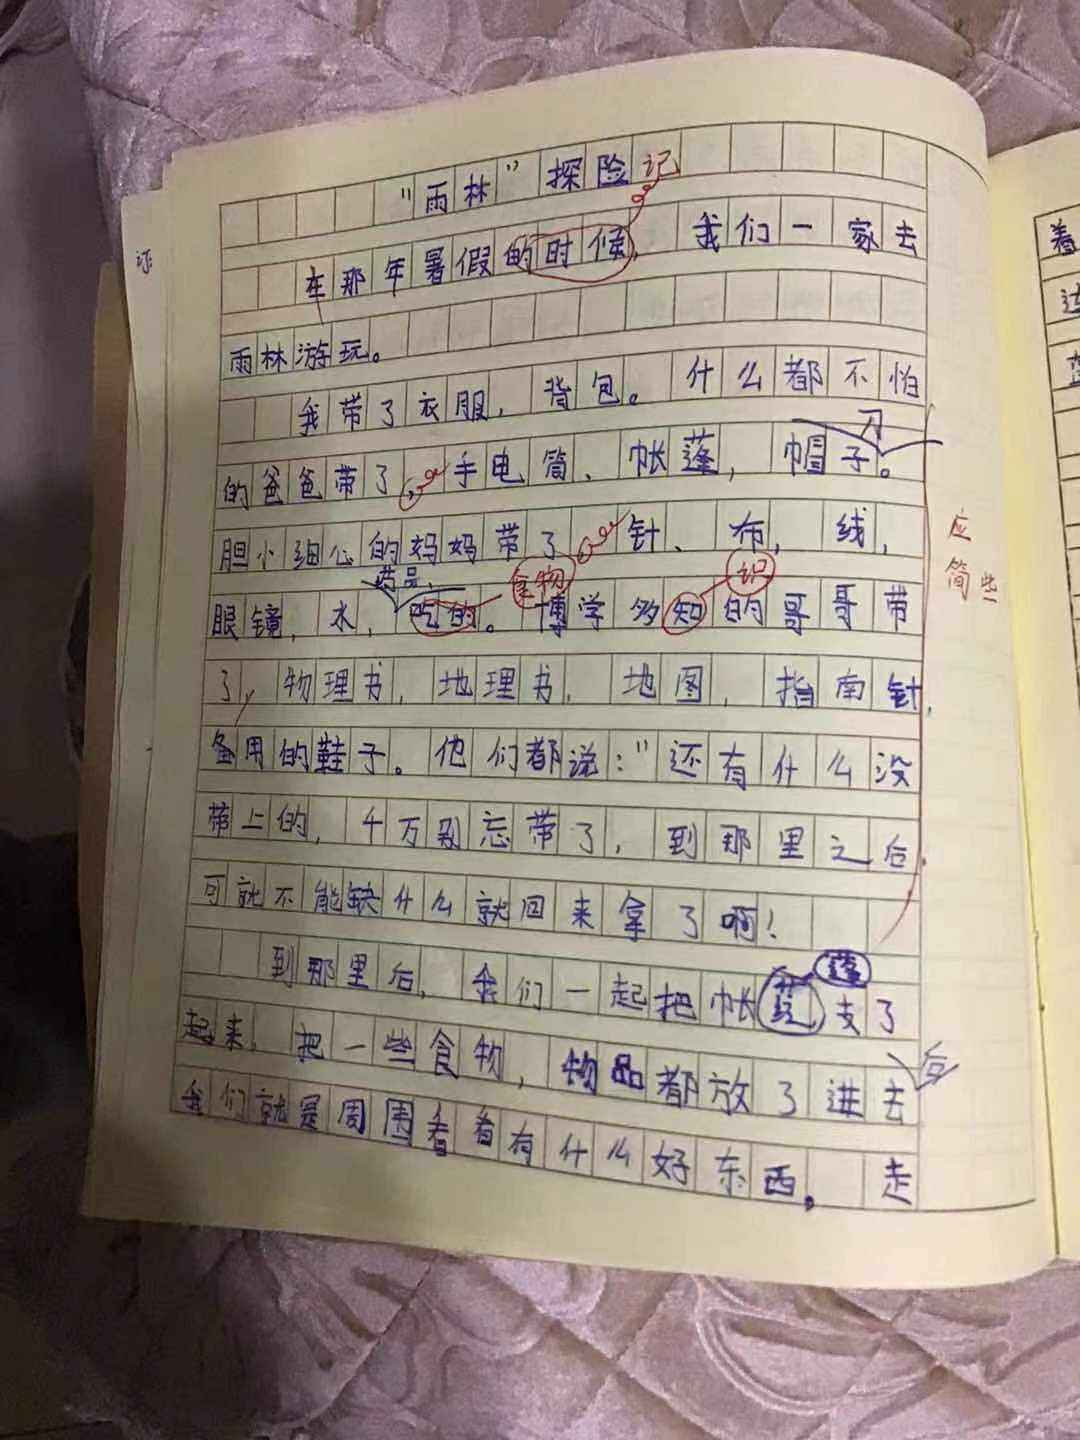 “雨林”探险记
在那年暑假的时候，我们一家去
雨林游玩。
我带了衣服，背包。什么都不怕
刀
的爸爸带了，手电筒、帐蓬，帽子。
胆小细心的妈妈带了针、布，线，
药品，
食物
识
眼镜，水，吃的。博学多知的哥哥带
了，物理书，地理书，地图，指南针，
备用的鞋子。他们都说：”还有什么没
带上的，千万别忘带了，到那里之后
可就不能缺什么就回来拿了啊！
应
简些
蓬
到那里后，我们一起把帐支了
起来，把一些食物，物品都放了进去
后
我们就是周围看看有什么好东西。走
着